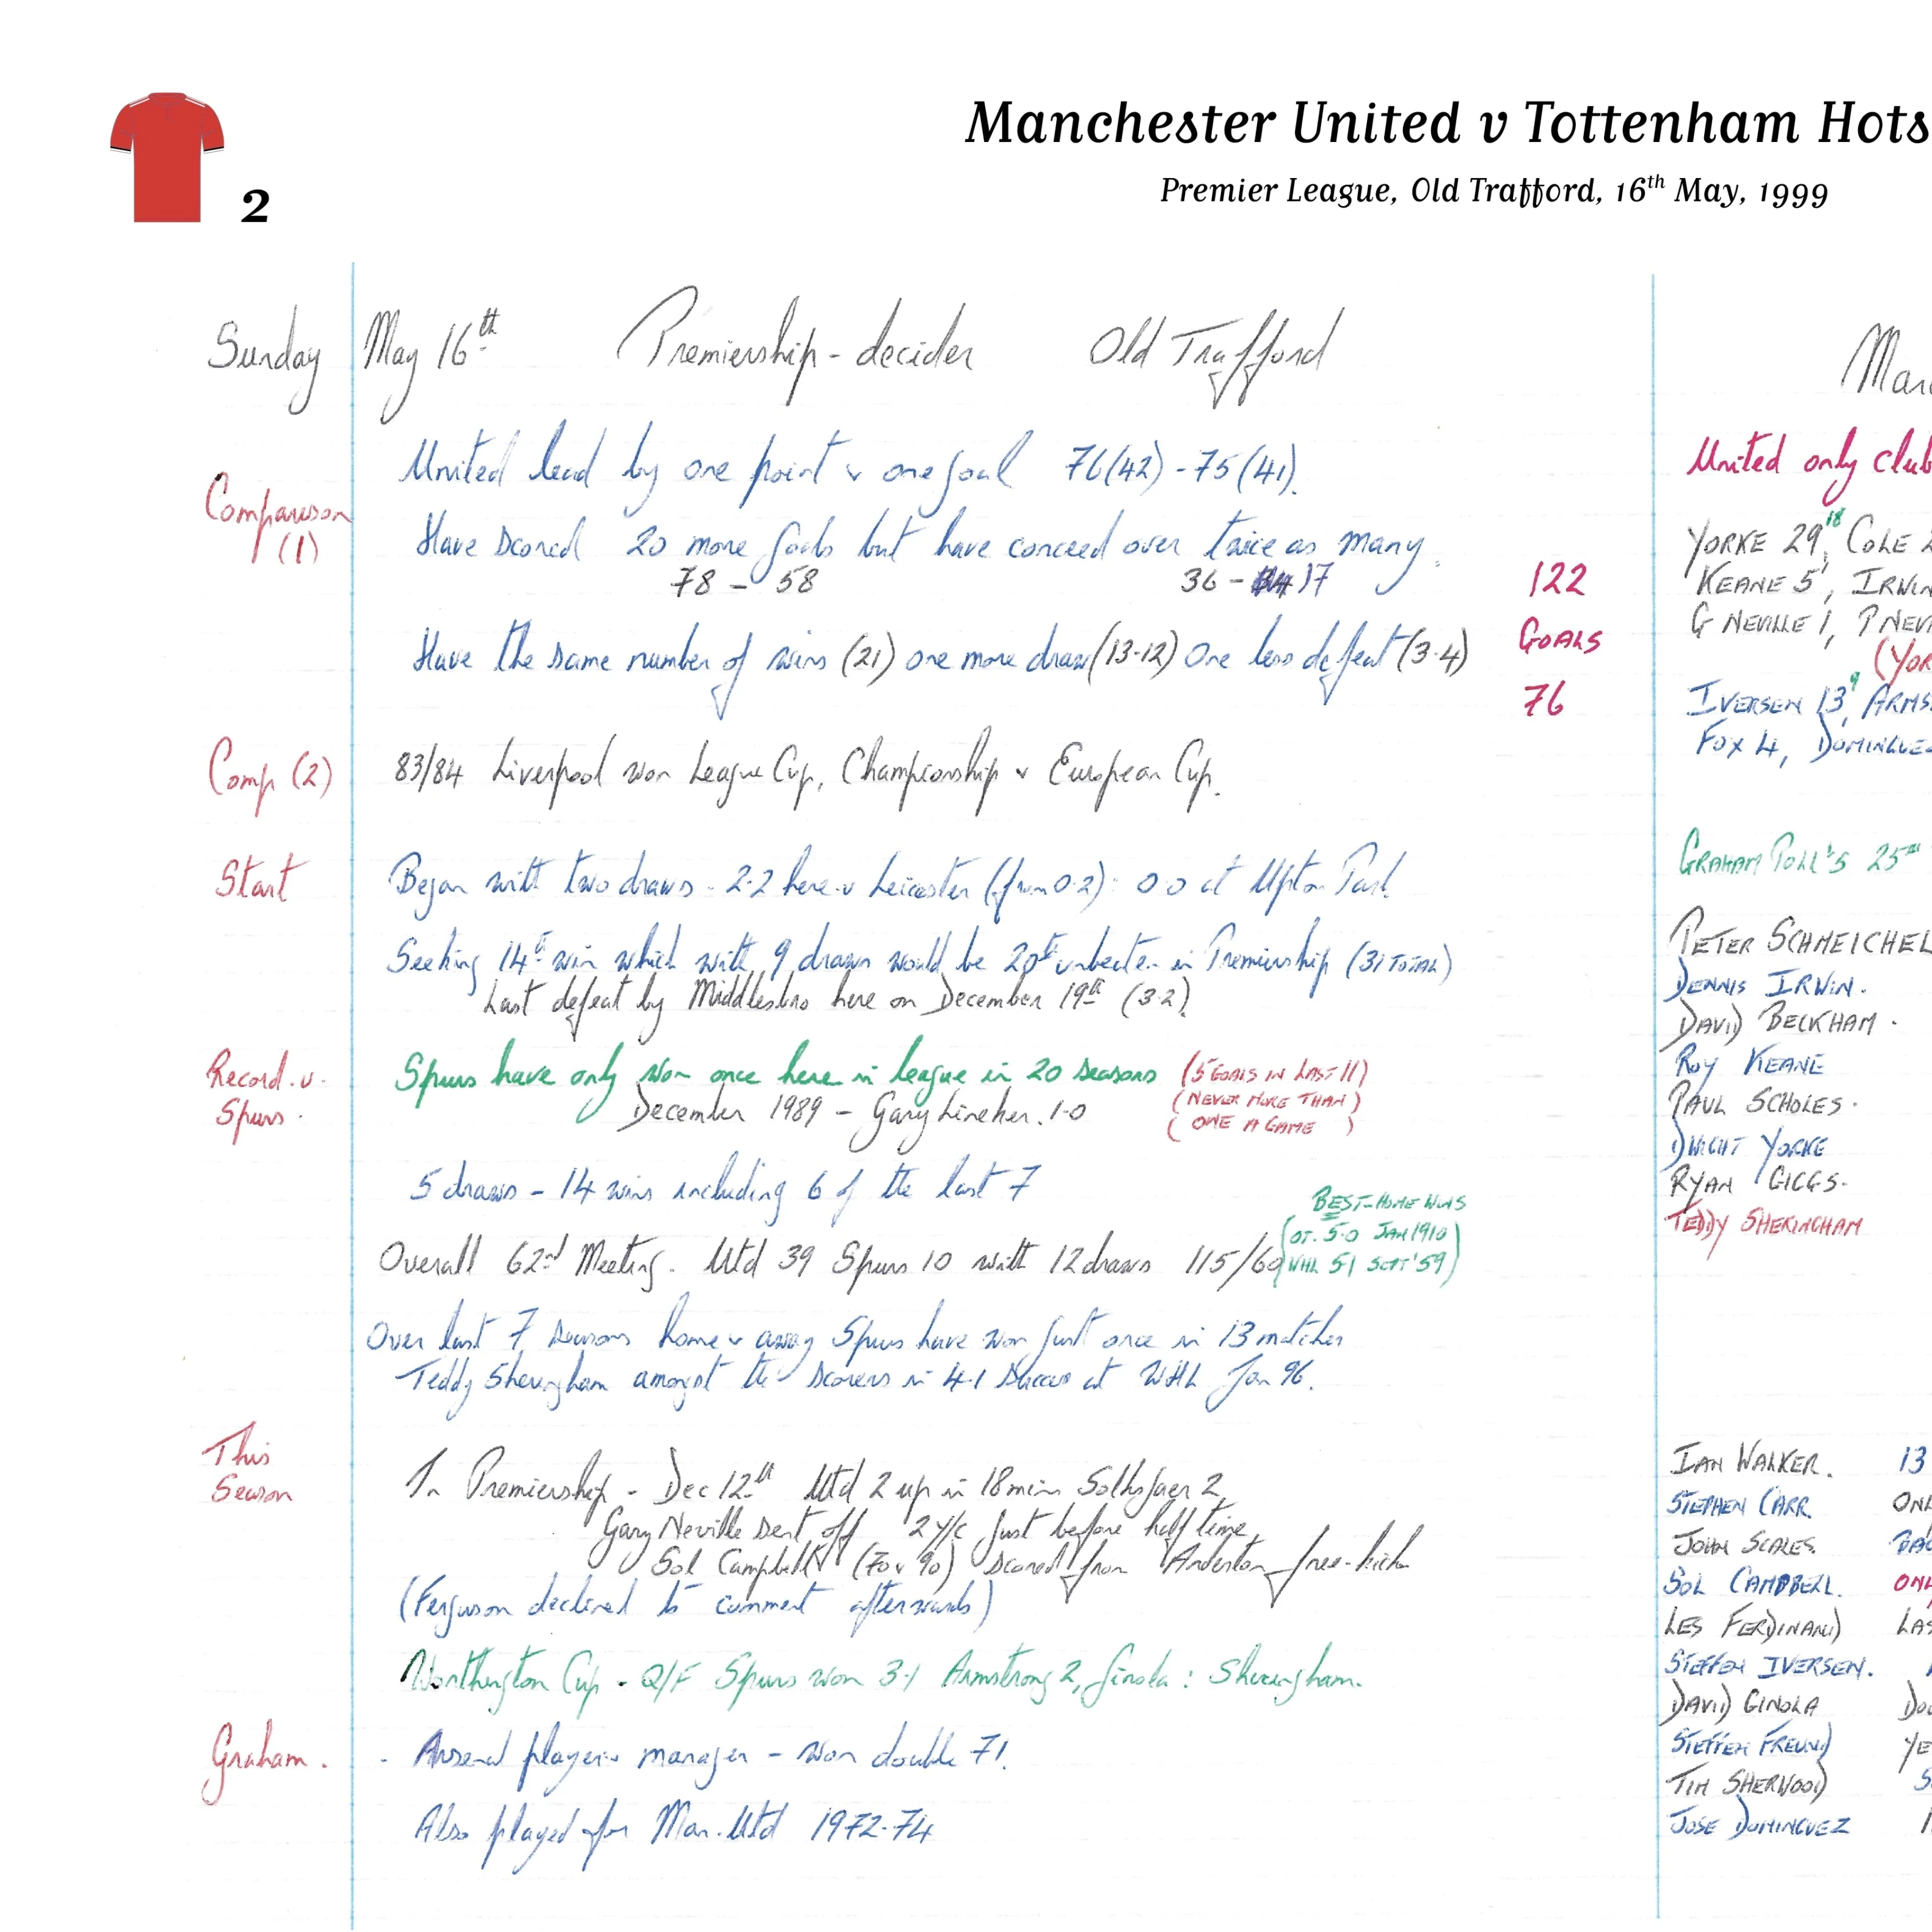 2
Manchester United v Tottenham Hots
Premier League, Old Trafford, 16th May, 1999
Sunday May 16th Premiership - decider Old Trafford
Comparison (1)
United lead by one point & one goal 76(42) - 75(41).
Have scored 20 more goals but have conceed over twice as many.
78 - 58 36 - 17
Have the same number of wins (21) one more draw (13-12) One less defeat (3-4)
122
GOALS
76
Comp (2) 83/84 Liverpool won League Cup, Championship & European Cup.
Start Began with two draws - 2-2 here v Leicester (from 0-2): 0-0 at Upton Park.
Seeking 14th win which with 9 draws would be 20th unbeaten in Premiership (31 TOTAL)
Last defeat by Middlesbro here on December 19th (3-2).
Record v. Spurs.
Spurs have only won once here in league in 20 seasons
December 1989 - Gary Lineker. 1-0
(5 GOALS IN LAST 11)
(NEVER MORE THAN)
(ONE A GAME)
5 draws - 14 wins including 6 of the last 7
Overall 62nd Meeting. Utd 39 Spurs 10 with 12 draws 115/60
BEST - HOME WINS
(OT. 5-0 JAN 1910)
(WHL 5-1 SEPT '59)
Over last 7 seasons home & away Spurs have won just once in 13 matches
Teddy Sheringham amongst the scorers in 4-1 success at WHL Jan 96.
This Season
In Premiership - Dec 12th Utd 2 up in 18 mins Solksjaer 2,
Gary Neville sent off 2 Y/C just before half time,
Sol Campbell (70 & 90) scored from Anderton free-kick
(Ferguson declined to comment afterwards)
Worthington Cup - Q/F Spurs won 3-1 Armstrong 2, Ginola : Sheringham.
Graham. - Arsenal player & manager - won double 71.
Also played for Man. Utd 1972-74
Man
United only club
YORKE 29 18, COLE 2
KEANE 5, IRWIN
G NEVILLE 1, P NEV
(YOR
IVERSEN 13 9, ARMS
FOX 4, DOMINGUE
GRAHAM POLL'S 25TH
PETER SCHMEICHEL
DENNIS IRWIN.
DAVID BECKHAM.
ROY KEANE
PAUL SCHOLES.
DWIGHT YORKE
RYAN GIGGS.
TEDDY SHERINGHAM
IAN WALKER. 13
STEPHEN CARR ONL
JOHN SCALES.
SOL CAMPBELL. ONL
LES FERDINAND LAS
STEFFEN IVERSEN.
DAVID GINOLA DOU
STEFFEN FREUND YE
TIM SHERWOOD S
JOSE DOMINGUEZ 1